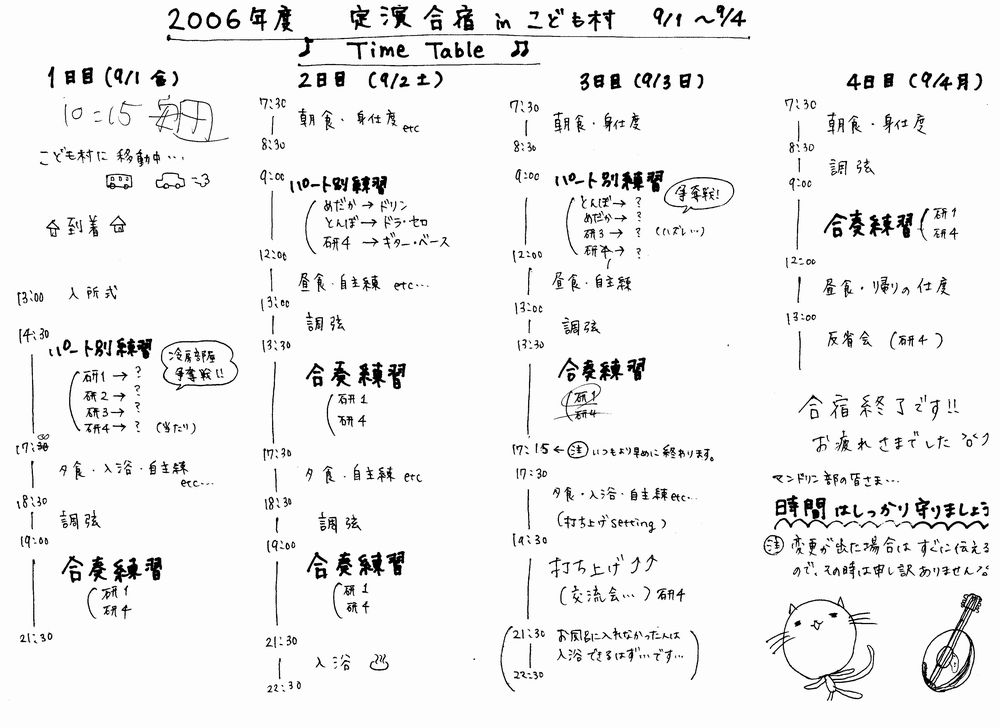 2006年度 定演合宿 in こども村 9/1 〜 9/4
♪ Time Table ♫
1日目 (9/1 金)
10:15
こども村に移動中…
到着
13:00 入所式
14:30
パート別練習
冷房部屋
争奪戦!!
研1 → ?
研2 → ?
研3 → ?
研4 → ? (当たり)
17:30
夕食・入浴・自主練
etc…
18:30
調弦
19:00
合奏練習
研1
研4
21:30
2日目 (9/2 土)
7:30
朝食・身仕度 etc
8:30
9:00
パート別練習
めだか → ドリン
とんぼ → ドラ・セロ
研4 → ギター・ベース
12:00
昼食・自主練 etc…
13:00
調弦
13:30
合奏練習
研1
研4
17:30
夕食・自主練 etc
18:30
調弦
19:00
合奏練習
研1
研4
21:30
入浴
22:30
3日目 (9/3 日)
7:30
朝食・身仕度
8:30
9:00
パート別練習
争奪戦!
とんぼ → ?
めだか → ?
研3 → ? (ハズレ…)
研4 → ?
12:00
昼食・自主練
13:00
調弦
13:30
合奏練習
研1
研4
17:15 ← 注 いつもより早めに終わります。
17:30
夕食・入浴・自主練etc…
(打ち上げsetting)
19:30
打ち上げ↑↑
(交流会…) 研4
21:30 お風呂に入れなかった人は
入浴できるはずです…
22:30
4日目 (9/4 月)
7:30
朝食・身仕度
8:30
調弦
9:00
合奏練習
研1
研4
12:00
昼食・帰りの仕度
13:00
反省会 (研4)
合宿終了です!!
お疲れさまでした
マンドリン部の皆さま…
時間はしっかり守りましょう
注 変更が出た場合はすぐに伝える
ので、その時は申し訳ありません